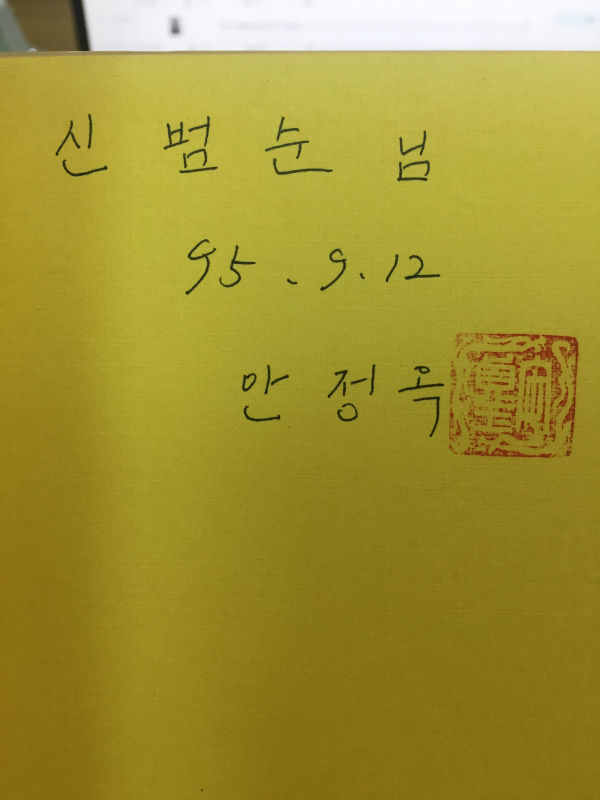 신 범 순 님
95 . 9. 12
안 정 옥